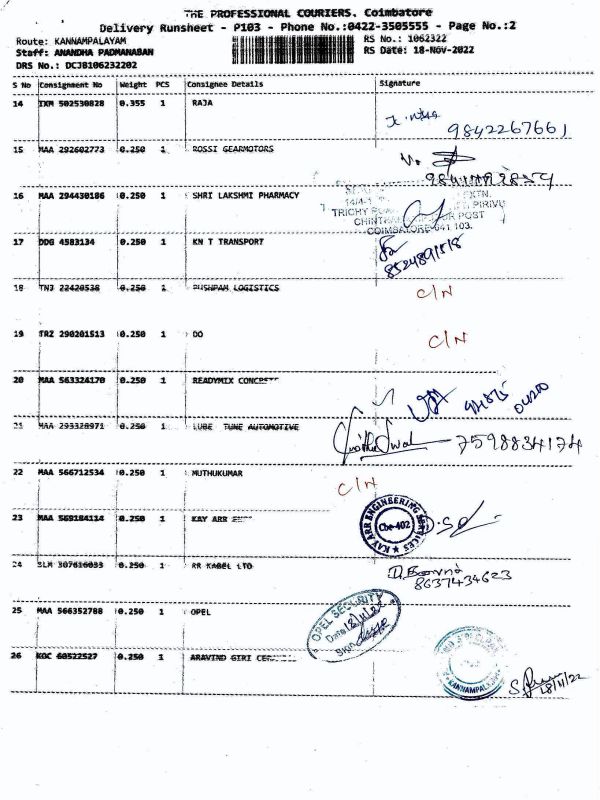 THE PROFESSIONAL COURIERS, Coimbatore
Delivery Runsheet - P103 - Phone No.:0422-3505555 - Page No.:2
Route: KANNAMPALAYAM RS No.: 1062322
Staff: ANANDHA PADMANABAN RS Date: 18-Nov-2022
DRS No.: DCJB106232202
S No Consignment No Weight PCS Consignee Details Signature
14 IXM 502530828 0.355 1 RAJA
9842267661
15 MAA 292602773 0.250 1 ROSSI GEARMOTORS
16 MAA 294430186 0.250 1 SHRI LAKSHMI PHARMACY
EXTN.
TRICHY PIRIVU
POST
COIMBATORE-641 103.
17 DDG 4583134 0.250 1 KN T TRANSPORT
8524891518
18 TNJ 22420536 0.250 1 PUSHPAM LOGISTICS C/N
19 TRZ 290201513 0.250 1 DO C/N
20 MAA 563324170 0.250 1 READYMIX CONCRETE
21 MAA 293328971 0.250 1 LUBE TUNE AUTOMOTIVE
7598834174
22 MAA 566712534 0.250 1 MUTHUKUMAR C/N
23 MAA 569184114 0.250 1 KAY ARR
KAY ARR ENGINEERING SERVICES
Cbe-402
24 SLM 307616033 0.250 1 RR KABEL LTD
8637434623
25 MAA 566352788 0.250 1 OPEL
OPEL SECURITY
Date 18/11/22
Sign
26 KOC 60522527 0.250 1 ARAVIND GIRI
KANNAMPALAYAM
18/11/22